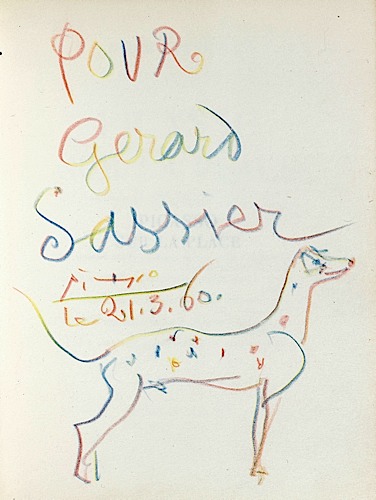 POUR
Gerard
Sassier
Picasso
Le 21.3.60.